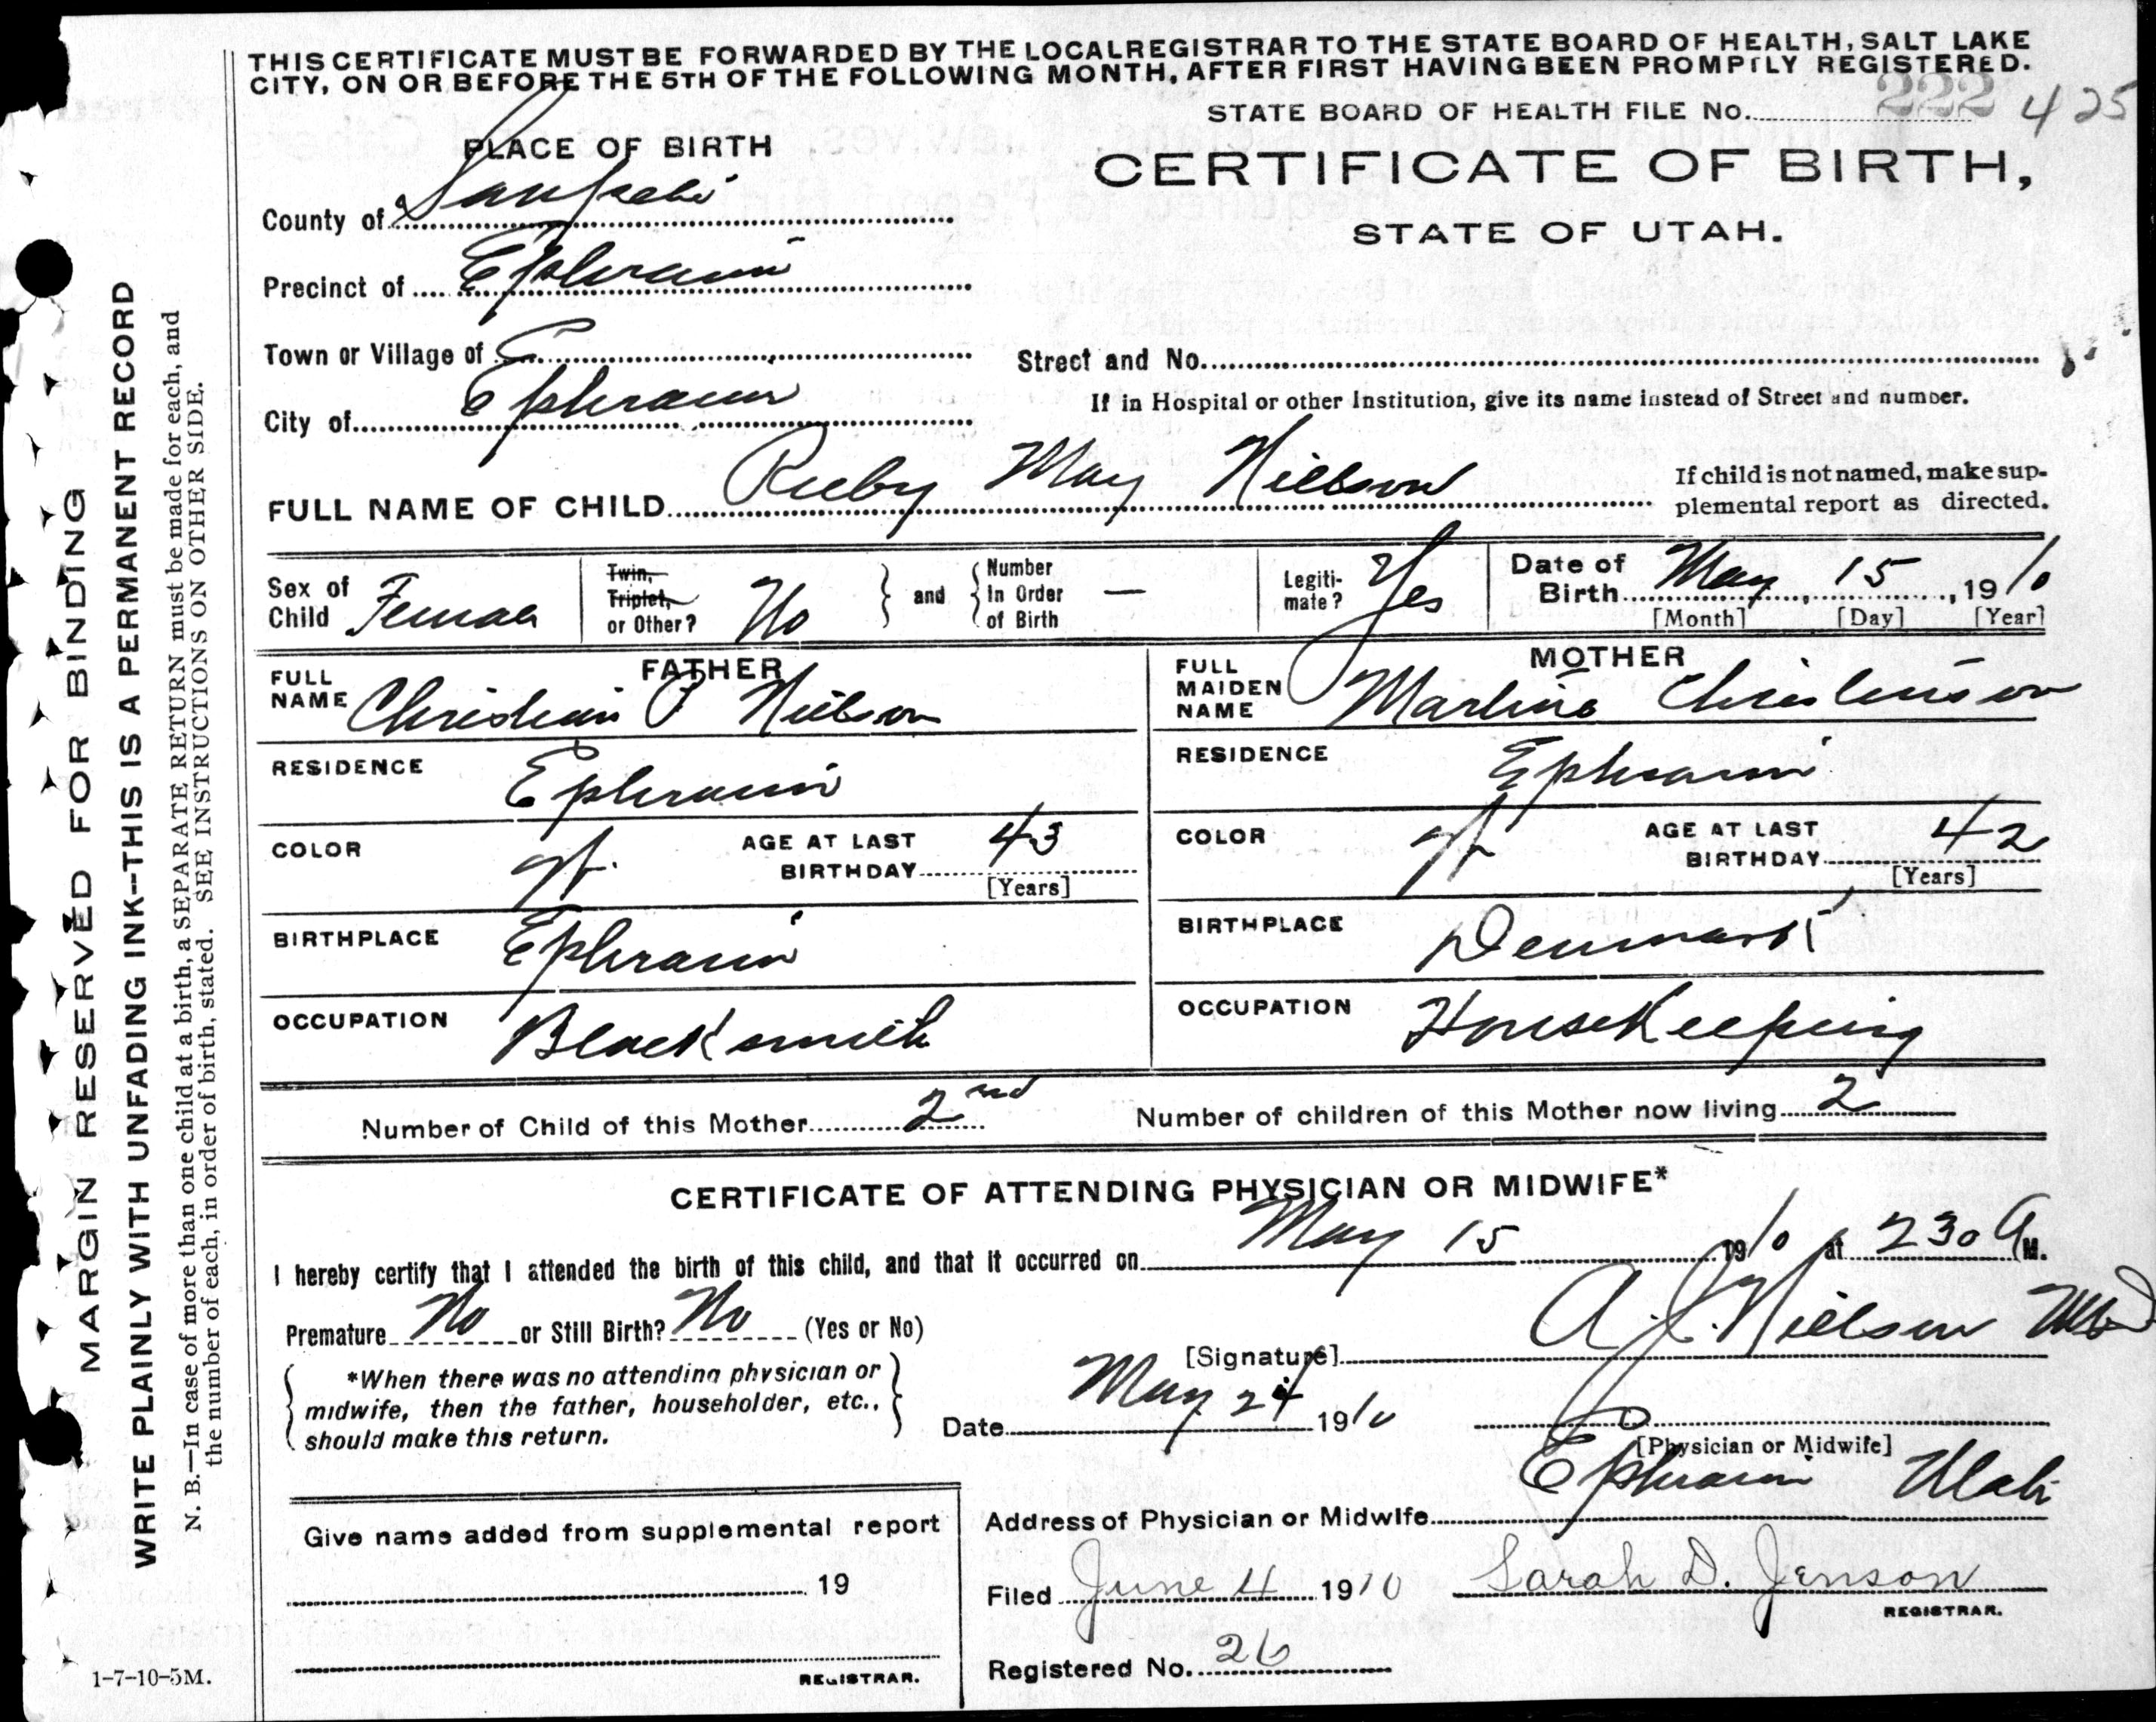 THIS CERTIFICATE MUST BE FORWARDED BY THE LOCAL REGISTRAR TO THE STATE BOARD OF HEALTH, SALT LAKE
CITY, ON OR BEFORE THE 5TH OF THE FOLLOWING MONTH, AFTER FIRST HAVING BEEN PROMPTLY REGISTERED.
STATE BOARD OF HEALTH FILE No. 222 425
PLACE OF BIRTH
CERTIFICATE OF BIRTH,
STATE OF UTAH.
County of Sanpete
Precinct of Ephraim
Town or Village of
Street and No.
City of Ephraim
If in Hospital or other Institution, give its name instead of Street and number.
FULL NAME OF CHILD Ruby May Nielson
If child is not named, make sup-
plemental report as directed.
Sex of Child Female
Twin, Triplet, or Other? No
and Number In Order of Birth —
Legiti-mate? Yes
Date of Birth May 15, 1910
[Month] [Day] [Year]
FATHER
FULL NAME Christian P Nielson
RESIDENCE Ephraim
COLOR W.
AGE AT LAST BIRTHDAY 43
[Years]
BIRTHPLACE Ephraim
OCCUPATION Blacksmith
MOTHER
FULL MAIDEN NAME Martina Christenson
RESIDENCE Ephraim
COLOR W
AGE AT LAST BIRTHDAY 42
[Years]
BIRTHPLACE Denmark
OCCUPATION HouseKeeping
Number of Child of this Mother 2nd
Number of children of this Mother now living 2
CERTIFICATE OF ATTENDING PHYSICIAN OR MIDWIFE*
I hereby certify that I attended the birth of this child, and that it occurred on May 15 1910 at 230 A M.
Premature No or Still Birth? No (Yes or No)
*When there was no attending physician or
midwife, then the father, householder, etc.,
should make this return.
[Signature] A. J. Nielson MD
Date May 24 1910
[Physician or Midwife]
Address of Physician or Midwife Ephraim Utah
Give name added from supplemental report
19
REGISTRAR.
Filed June 4 1910 Sarah D. Jenson
REGISTRAR.
Registered No. 26
1-7-10-5M.
MARGIN RESERVED FOR BINDING
WRITE PLAINLY WITH UNFADING INK--THIS IS A PERMANENT RECORD
N. B.—In case of more than one child at a birth, a SEPARATE RETURN must be made for each, and
the number of each, in order of birth, stated. SEE INSTRUCTIONS ON OTHER SIDE.